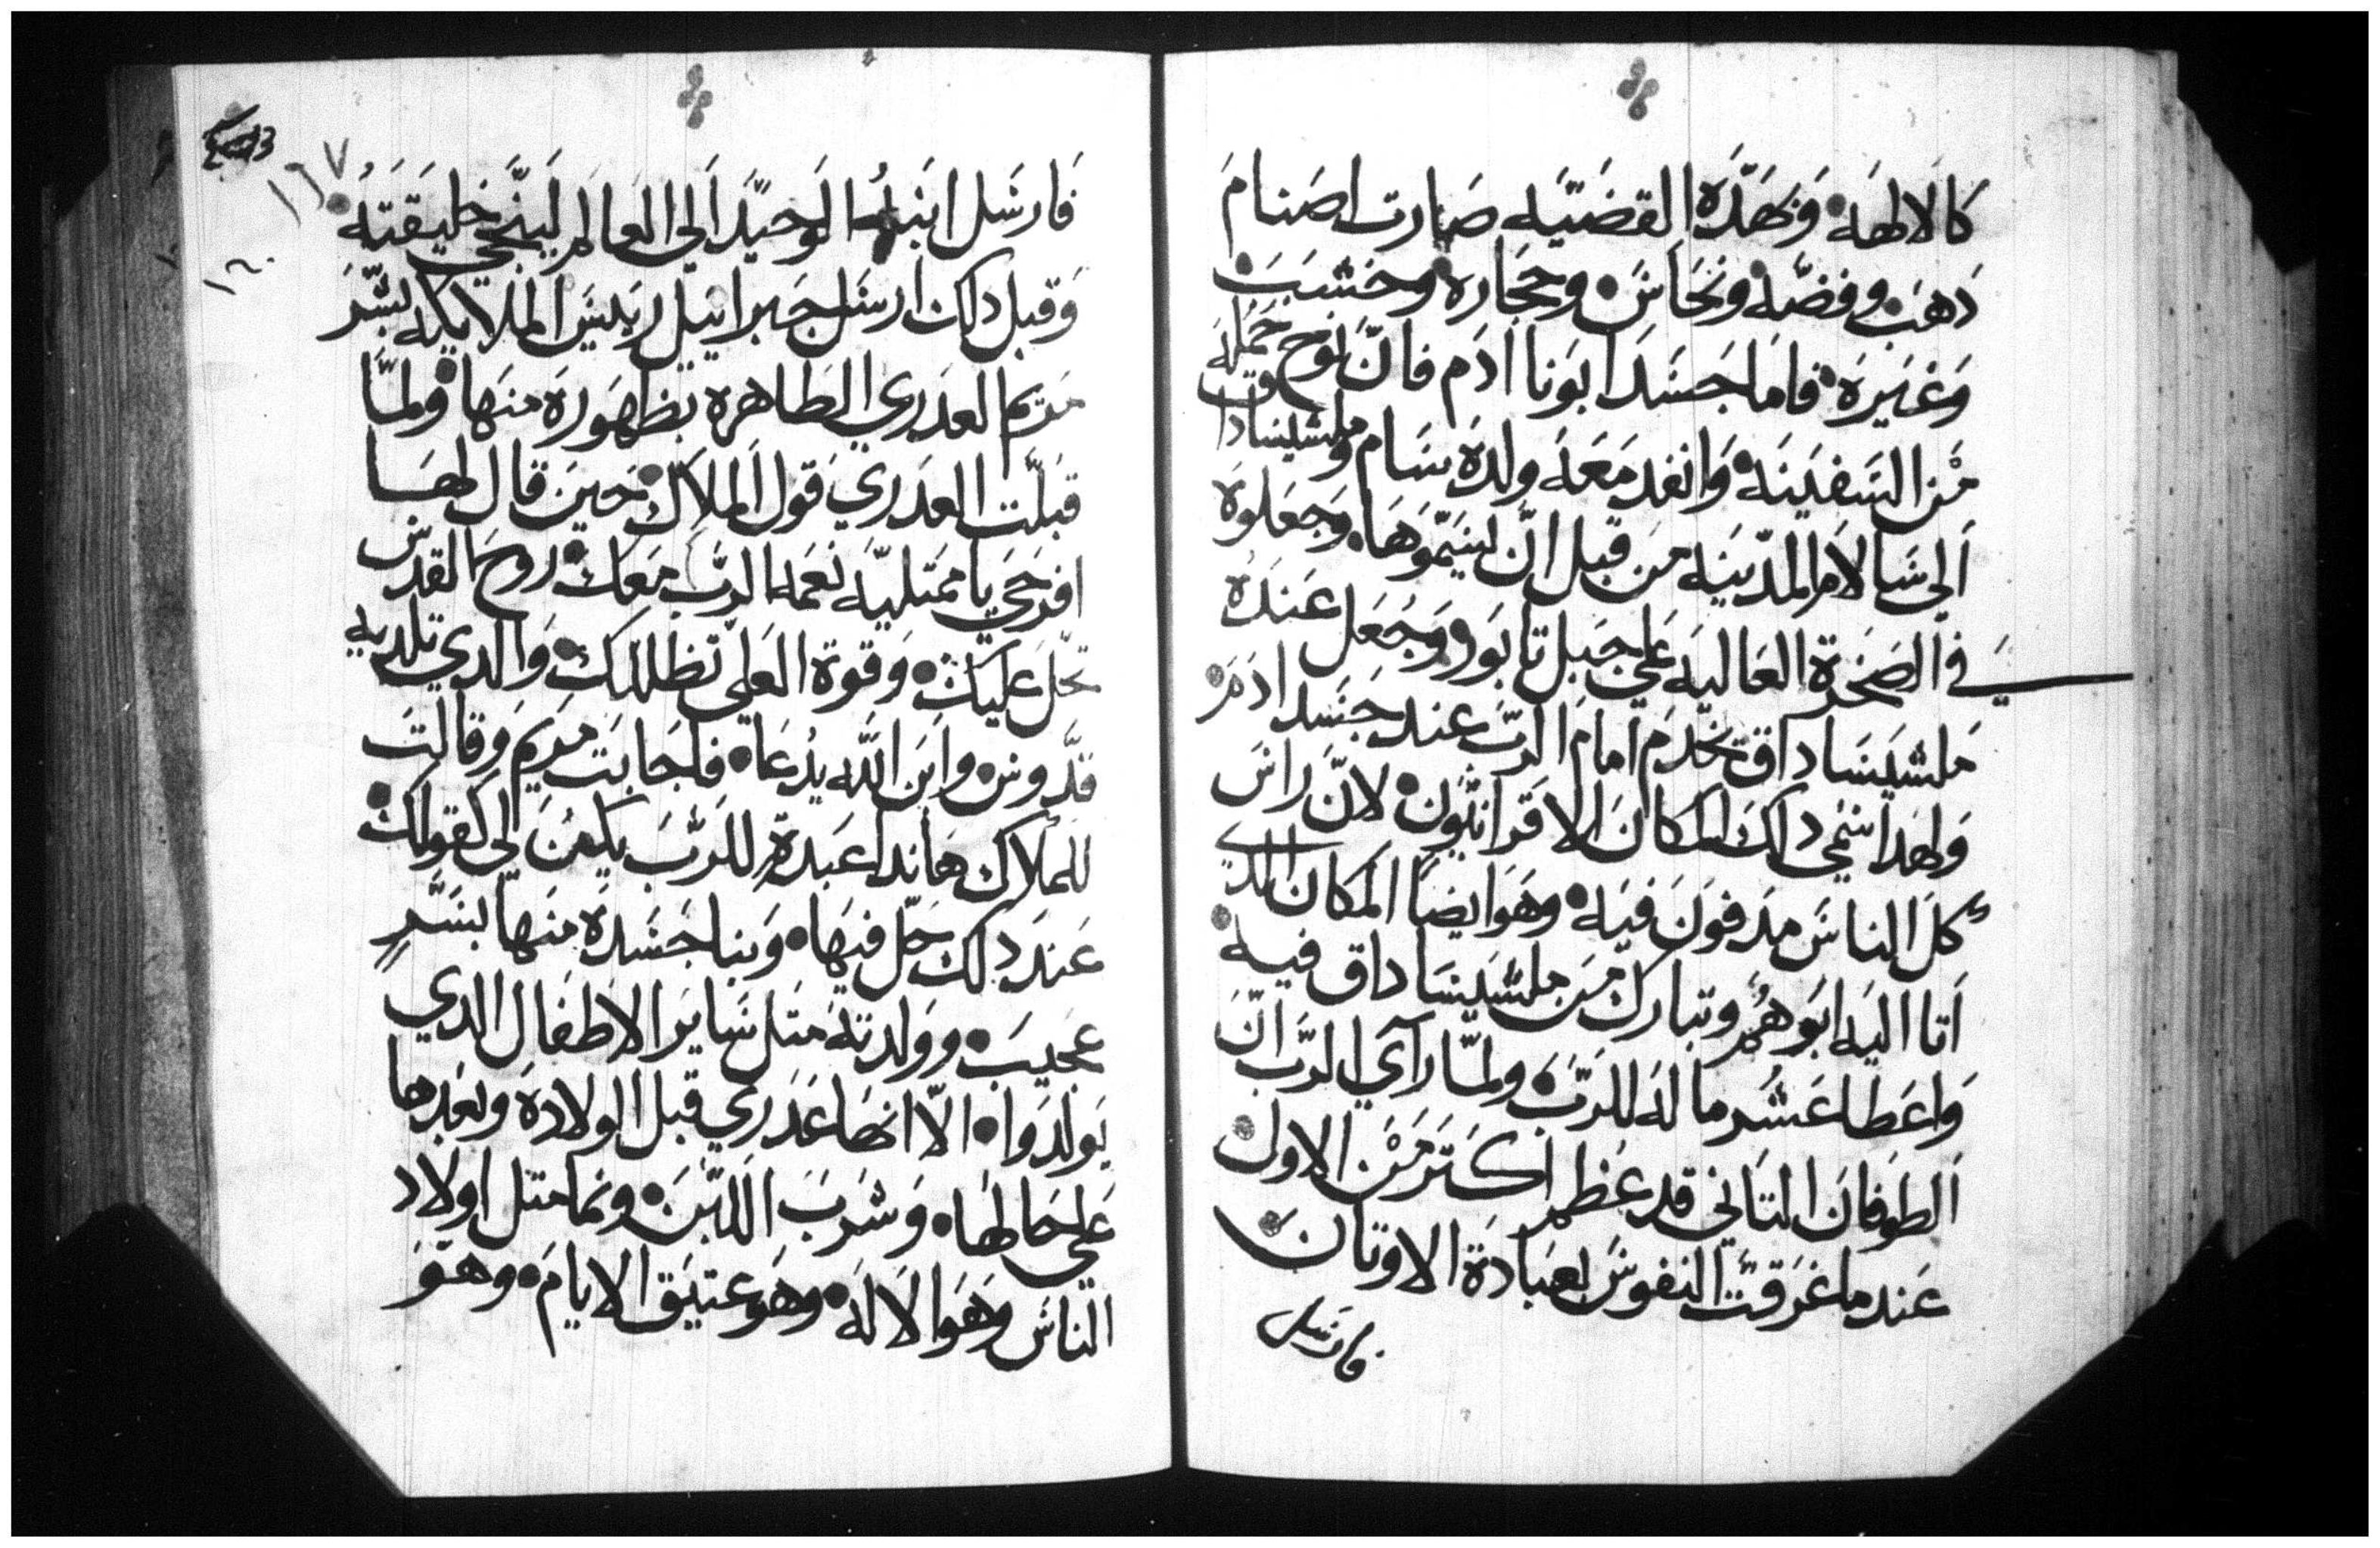 كالالهه وبهده القضيه صارت اصنام
دهب وفضه ونحاس وحجاره وخشب
وغيره فاما جسد ابونا ادم فان نوح حمله
من السفينه وانفد معه ولده سام وملشيساداق
الي شالام المدينه من قبل ان يتموها وجعلوه
في الصخرة العاليه علي جبل تابور وجعل عنده
ملشيساداق يخدم امام الرب عند جسد ادم
ولهدا سمي داك المكان الاقرانيون لان راس
كل الناس مدفون فيه وهو ايضا المكان الدي
اتا اليه ابوهم وتبارك من ملشيساداق فيه
واعطا عشر ماله للرب ولما راي الرب ان
الطوفان التاني قد عظم اكتر من الاول
عند ما غرقت النفوس لعبادة الاوتان
فارسل
١٦٧
١٦٠
فارسل ابنه الوحيد الي العالم لينجي خليقته
وقبل دلك ارسل جبراييل رييس الملايكه يبشر
مريم العدري الطاهره بظهوره منها ولما
قبلت العدري قول الملاك حين قال لها
افرحي يا ممتليه نعمه الرب معك روح القدس
تحل عليك وقوة العلي تظللك والدي تلديه
قدوس وابن الله يدعا فاجابت مريم وقالت
للملاك هاندا عبدة للرب يكون لي كقولك
عند دلك حل فيها وبنا جسده منها بسر
عجيب وولدته متل ساير الاطفال الدي
يولدوا الا انها عدري قبل الولاده وبعدها
علي حالها وشرب اللبن ونما متل اولاد
الناس وهو الاله وهو عتيق الايام وهو